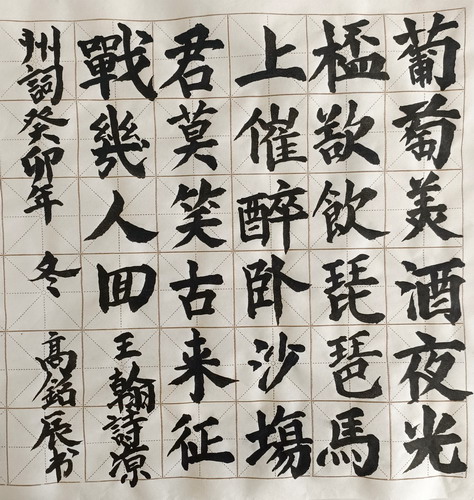 葡萄美酒夜光
杯欲飲琵琶馬
上催醉卧沙場
君莫笑古来征
戰幾人回王翰詩凉
州詞癸卯年冬高銘辰书